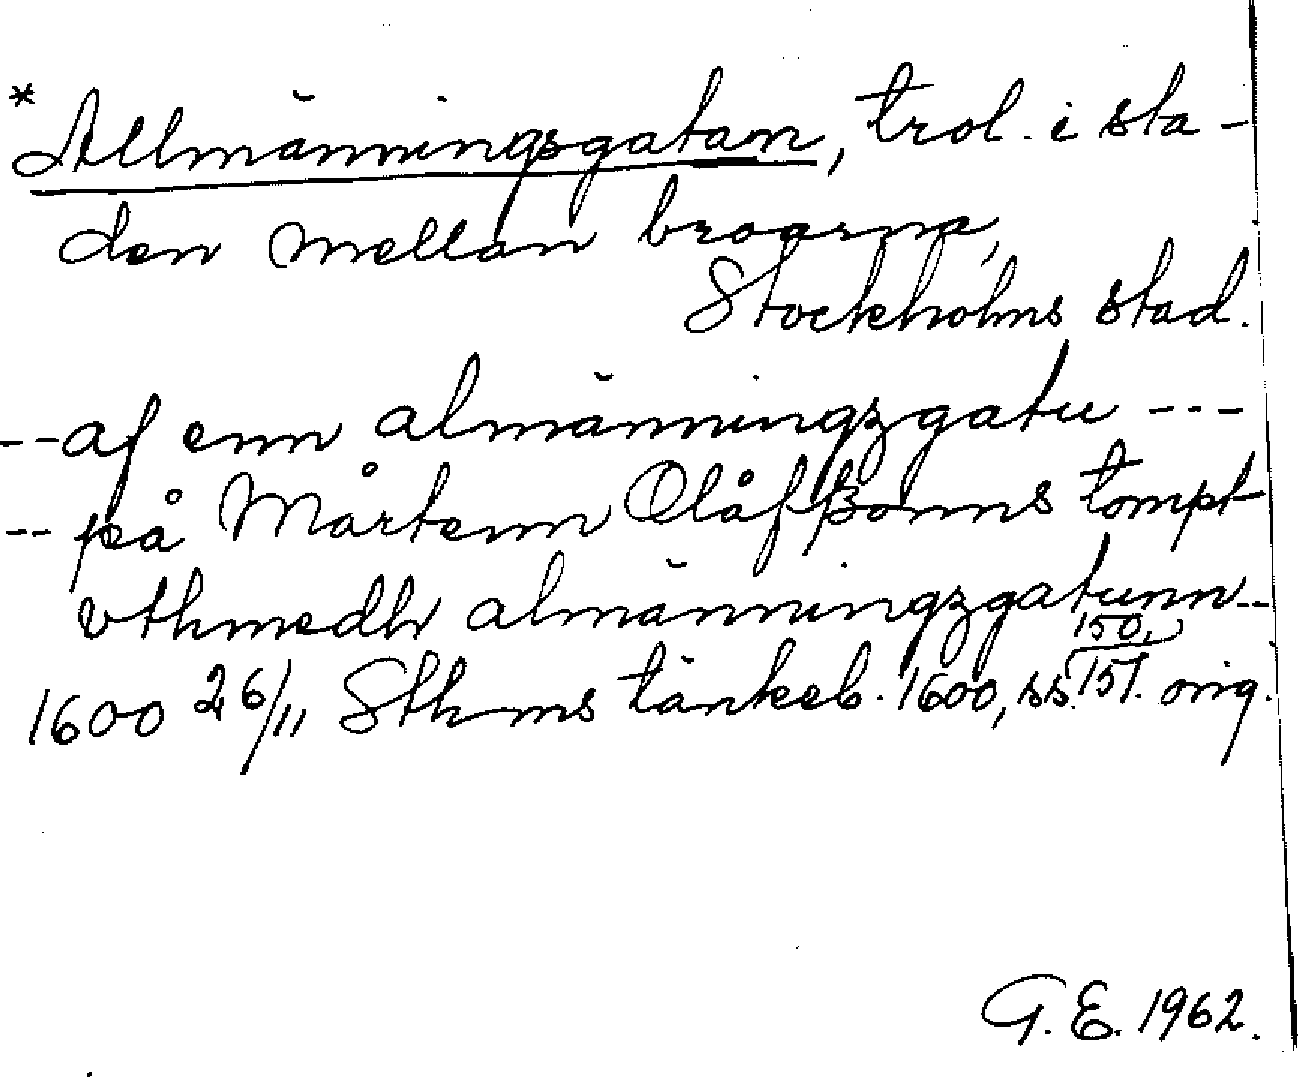 * Allmänningsgatan, trol. i sta-
den mellan broarna,
Stockholms stad.
--af enn almänningzgatu ---
-- på Mårtenn Olåfßonns tompt
vthmedh almänningzgatunn--
1600 26/11 Sthms tänkeb. 1600, ss. 150, 151. orig.
G.E. 1962.